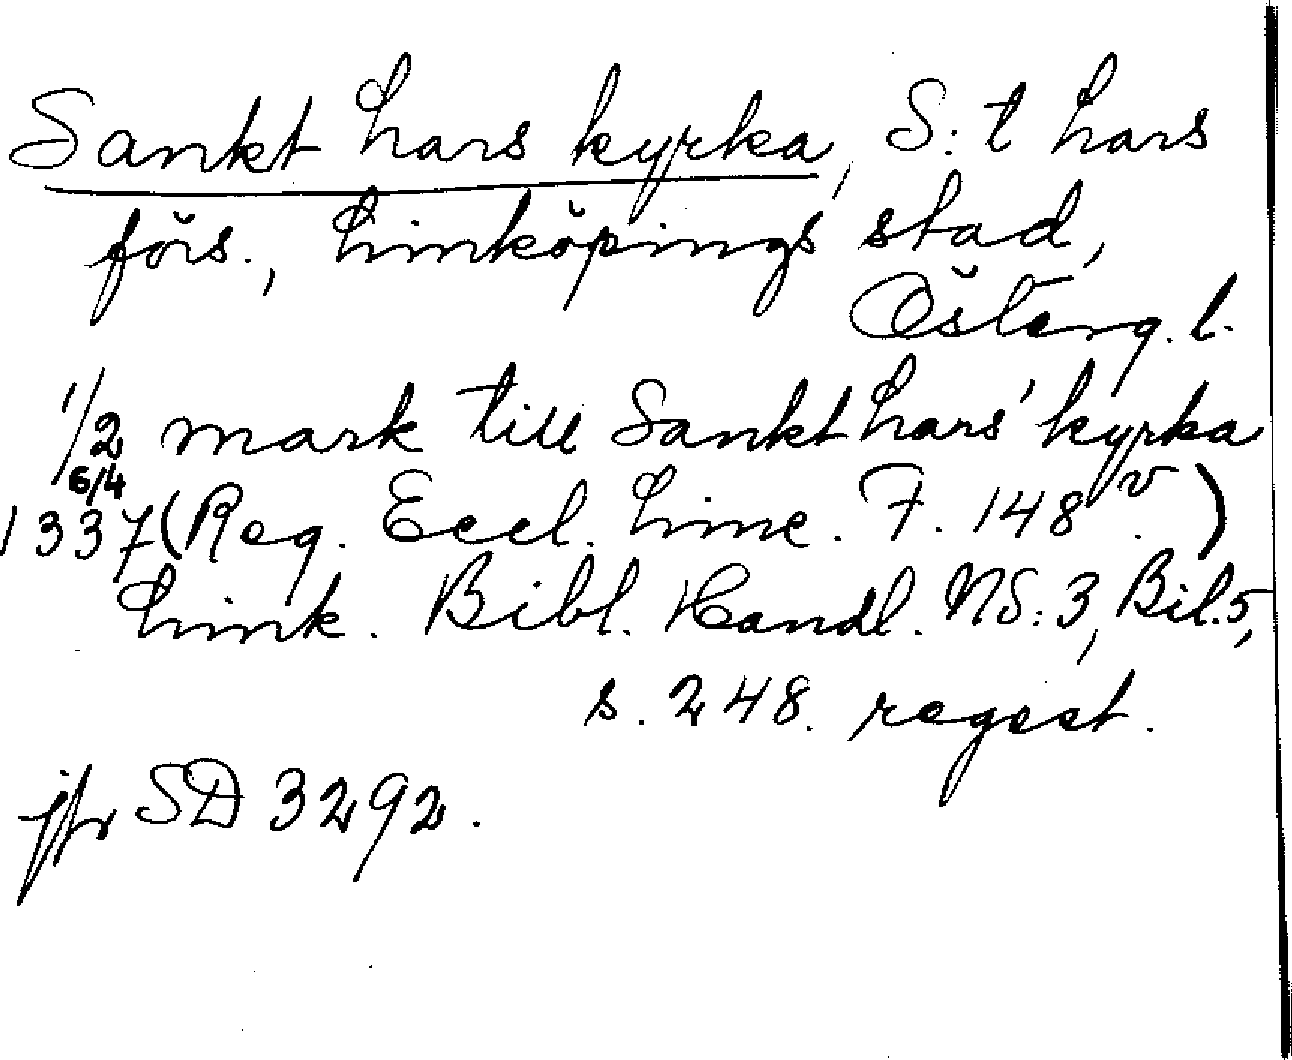 Sankt Lars kyrka, S:t Lars
förs., Linköpings stad,
Österg. l.
1/2 mark till Sankt Lars' kyrka
6/4
1337 (Reg. Eccl. Linc. F. 148 v.)
Link. Bibl. Handl. NS: 3, Bil. 5,
s. 248. regest.
jfr SD 3292.